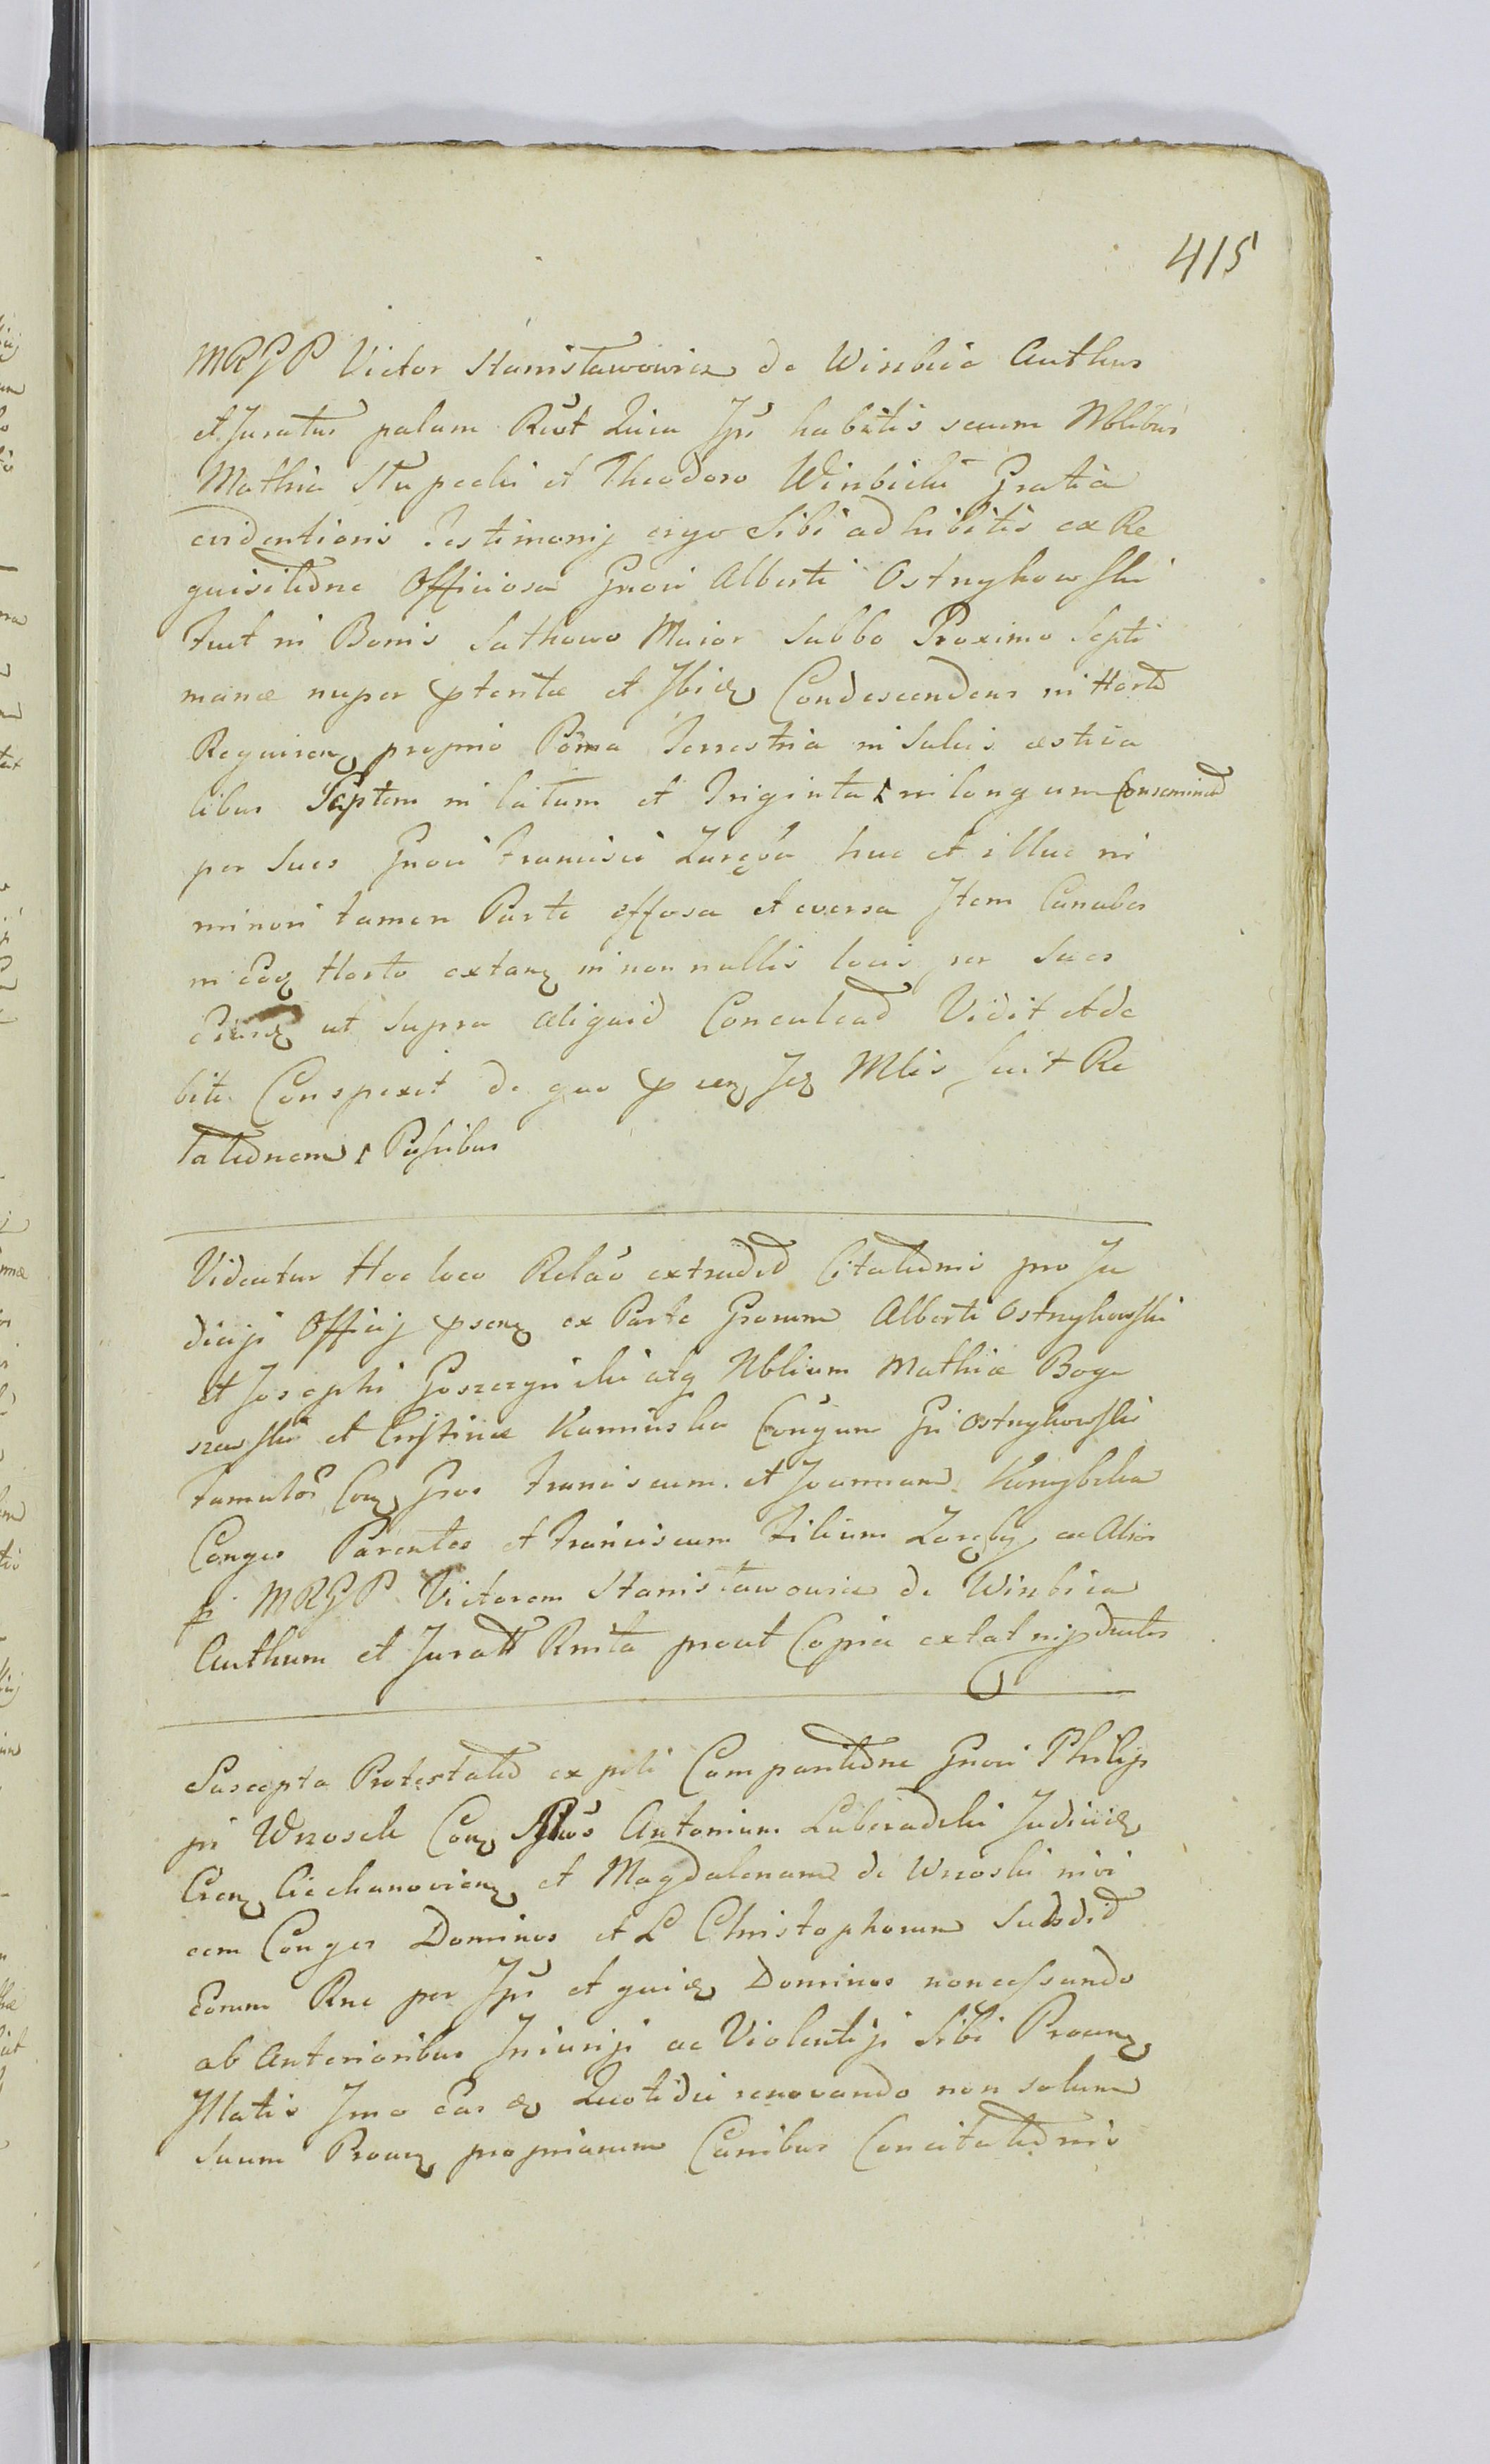 415
MRGP Victor Stanisławowicz de Winbica Authus
et Juratus palam Rēvt Quia Ips̄ habitis secum Nblibus
Mathia Słupecki et Theodoro Winbicki Gratia
evidentioris Testimonij ergo Sibi adhibitis ex Re
quisitiōne Officiosa Gnosi Alberti Ostrzykowski
Fuit in Bonis Sathowo Maior Sabbo Proximo Septi
manæ nuper pteritæ et Ibidꝫ Condescendens in Hortū
Requirenꝫ proprio Poma Terrestria in Sulcis æstiva
libus Septem in latum et Triginta in longum Conseminat
per Sues Gnosi Francisci Zaręba huc et illuc in
minori tamen Parte effosa et eversa Item Canabes
in Eodꝫ Horto extanꝫ in non nullis locis per Sues
Eiusdꝫ ut Supra aliquid Conculcat Vidit et de
bite Conspexit de quo p senꝫ Jdꝫ Mlis fecit Re
latiōnem Pñsibus
Videatur Hoc loco Relāo extradit Citatiōnis pro Ju
dicijs Officij psenꝫ ex Parte Grorum Alberti Ostrzykowski
et Josephi Goszczycki atq Nblium Mathiæ Bogu
szewski et Cristinæ Kaminska Coñgum Gñi Ostrzykowski
Famulor̄ Conꝫ Gros Franciscum et Joannam Karzybska
Conges Parentes et Franciscum Filium Zaręby ac Alios
p MRGP Victorem Stanisławowicz de Winbica
Authum et Juratt Rnita prout Copia extat in pductes
Suscepta Protestatiō ex pñti Comparitiōne Gnosi Philip
pi Wrosek Conꝫ Antonium Luberadzki Judicidꝫ
Crenꝫ Ciechanovienꝫ et Magdalenam de Wrioski invi
cem Conges Dominos et L Christophorum Subdit
Eorum Rne per Ips̄ et quidꝫ Dominos non cessando
ab Anterioribus Injurijs ac Violentijs Sibi Proanꝫ
Illatis Imo Eas dꝫ Quotidie renovando non solum
Suum Proanꝫ propriarum Canibus Concitatiōnis